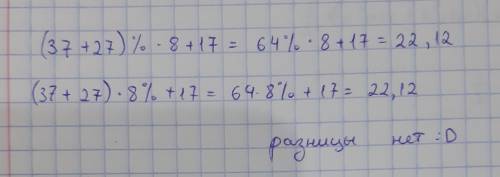 (37+27)% · 8+17 = 64% · 8+17 = 22,12
(37+27) · 8% +17 = 64 · 8% + 17 = 22,12
разницы нет :D